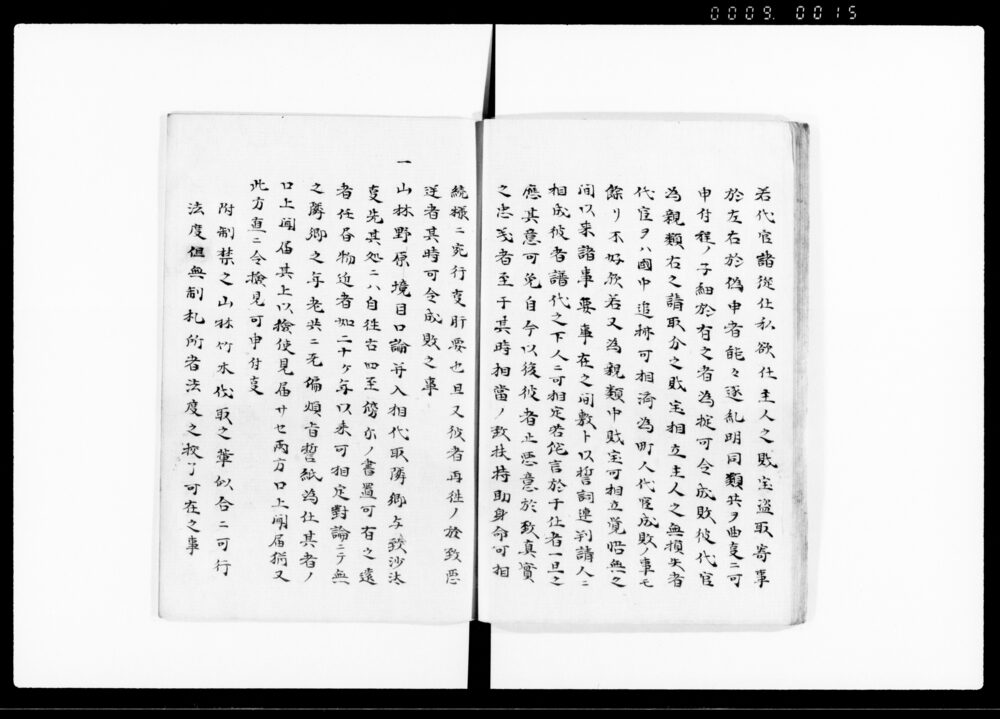 0009. 0015
若代官諸従仕私欲仕主人之財宝盗取寄事
於左右於偽申者能々遂乱明同類共ヲ曲事ニ可
申付程ノ子細於有之者為掟可令成敗彼代官
為親類右之請取分之財宝相立主人之無損失者
代官ヲハ國中追拂可相済為町人代官成敗ノ事モ
餘リ不好欤若又為親類中財宝可相立覚悟無之
间以来諸事要事在之间敷ト以誓詞連判請人ニ
相成彼者譜代之下人ニ可相定若侘言於于仕者一旦之
應其意可免自今以後彼者止悪意於致真實
之忠哉者至于其時相當ノ致扶持助身命可相
続様ニ究行事肝要也且又彼者再往ノ於致悪
逆者其時可令成敗之事
一
山林野原境目口論并入相代取隣郷与致沙汰
事先其処ニハ自往古四至傍尓ノ書置可有之遠
者任旧物近者如二十ヶ年以来可相定對論ニテ無
之隣郷之年老共ニ無偏頗旨誓紙為仕其者ノ
口上聞届其上以撿使見届サセ両方口上聞届猶又
此方直ニ令撿見可申付事
附制禁之山林竹木伐取之輩似合ニ可行
法度但無制札所者法度之按了可在之事